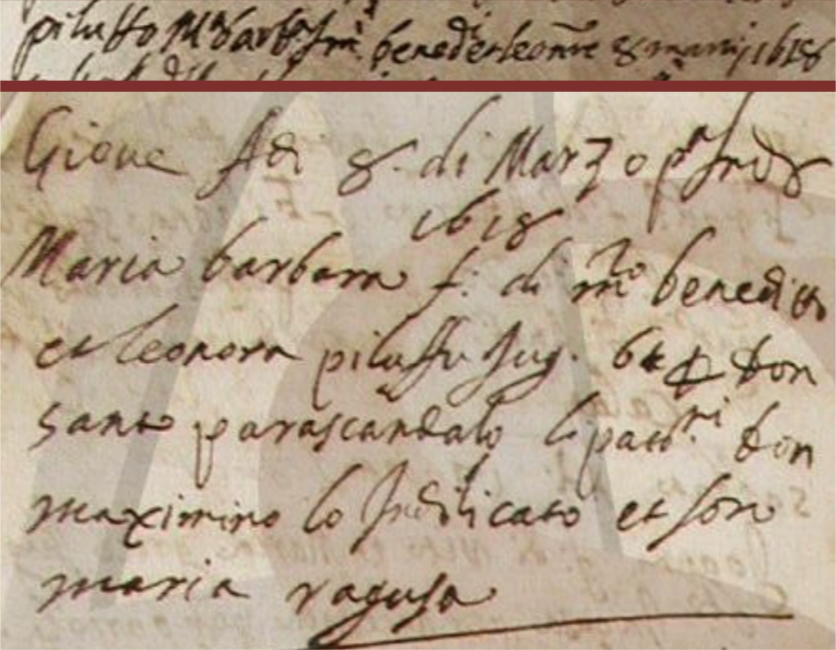 piluffo M.ª barb.ª f. m.º bened. et leonore 8 martij 1618
Giove Adi 8. di Marzo p.ª Ind.
1618
Maria barbara f. di m.ro beneditto
et leonora piluffo Jug. don
santo parascandalo li patri.ni don
maximino lo Judilicato et sor
maria ragusa